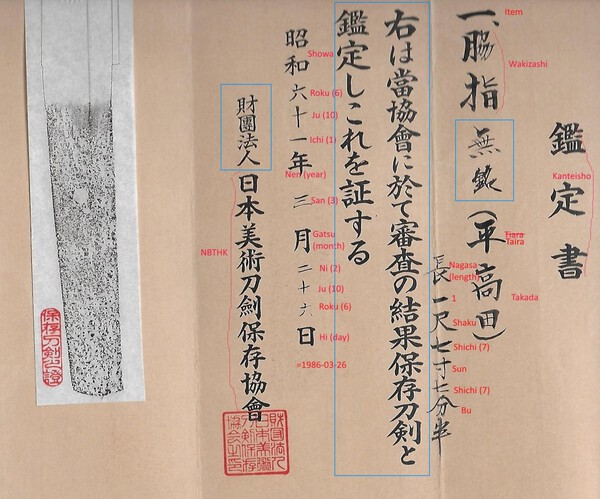 鑑定書
Kanteisho
一、脇指 無銘 (平高田)
Item
Wakizashi
Tiara
Taira
Takada
長一尺七寸七分半
Nagasa
(length)
1
Shaku
Shichi (7)
Sun
Shichi (7)
Bu
右は當協會に於て審査の結果保存刀剣と
鑑定しこれを証する
昭和六十一年三月二十六日
Showa
Roku (6)
Ju (10)
Ichi (1)
Nen (year)
San (3)
Gatsu
(month)
Ni (2)
Ju (10)
Roku (6)
Hi (day)
=1986-03-26
財團法人
日本美術刀劍保存協會
NBTHK